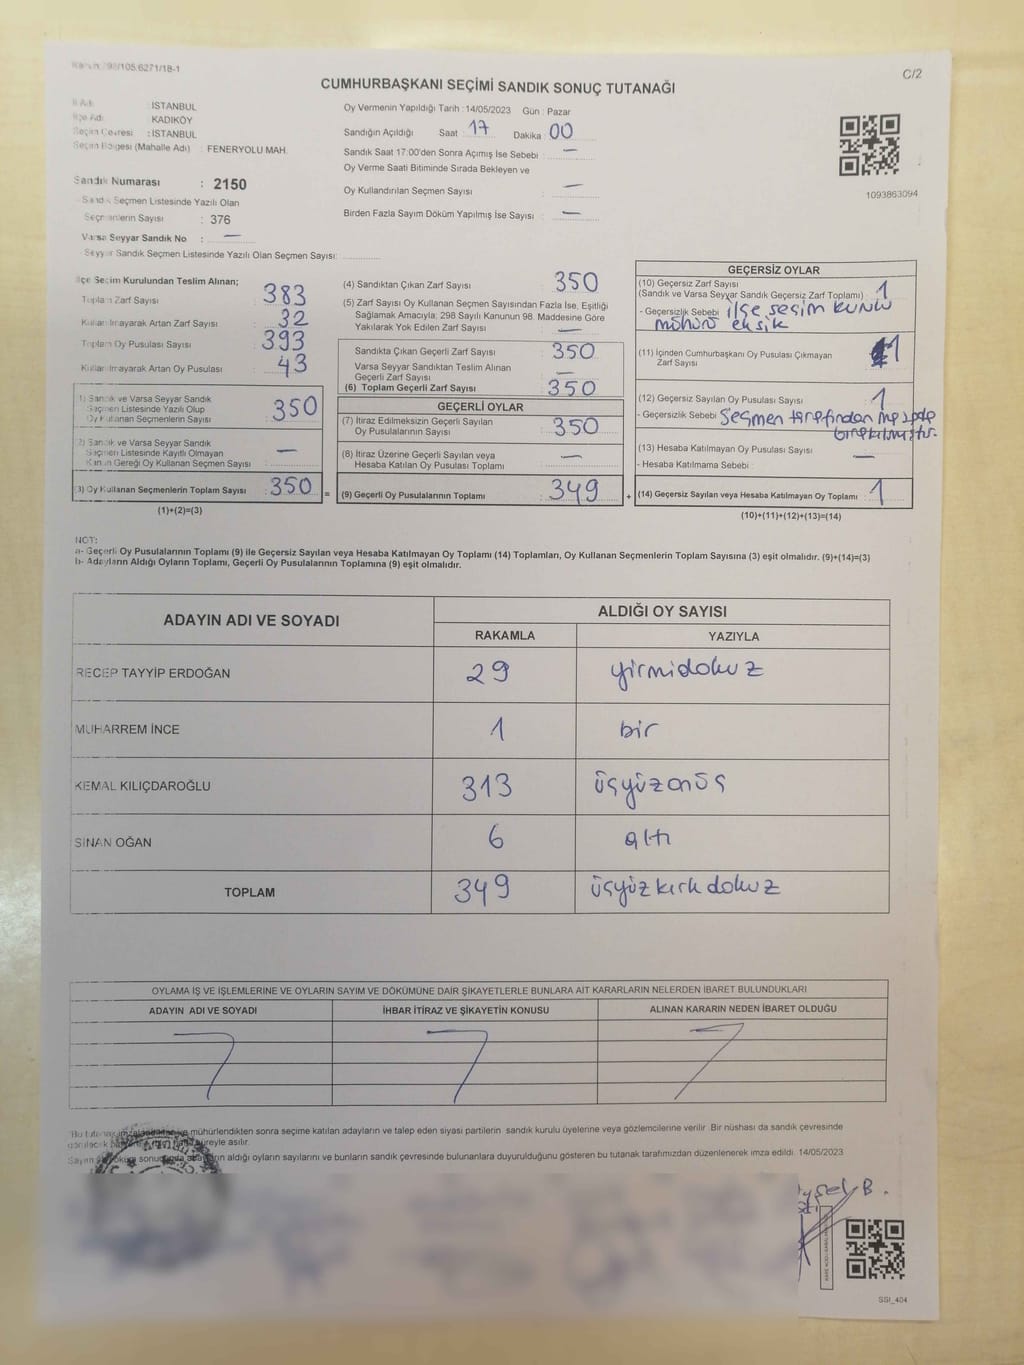 C/2
CUMHURBAŞKANI SEÇİMİ SANDIK SONUÇ TUTANAĞI
İl Adı : İSTANBUL
İlçe Adı : KADIKÖY
Seçim Çevresi : İSTANBUL
Seçim Bölgesi (Mahalle Adı) : FENERYOLU MAH.
Sandık Numarası : 2150
Sandık Seçmen Listesinde Yazılı Olan
Seçmenlerin Sayısı : 376
Varsa Seyyar Sandık No : —
Seyyar Sandık Seçmen Listesinde Yazılı Olan Seçmen Sayısı:
Oy Vermenin Yapıldığı Tarih : 14/05/2023 Gün : Pazar
Sandığın Açıldığı Saat 17 Dakika 00
Sandık Saat 17:00'den Sonra Açımış İse Sebebi : —
Oy Verme Saati Bitiminde Sırada Bekleyen ve
Oy Kullandırılan Seçmen Sayısı : —
Birden Fazla Sayım Döküm Yapılmış İse Sayısı : —
1093863094
İlçe Seçim Kurulundan Teslim Alınan;
Toplam Zarf Sayısı : 383
Kullanılmayarak Artan Zarf Sayısı : 32
Toplam Oy Pusulası Sayısı : 393
Kullanılmayarak Artan Oy Pusulası : 43
(1) Sandık ve Varsa Seyyar Sandık
Seçmen Listesinde Yazılı Olup
Oy Kullanan Seçmenlerin Sayısı : 350
(2) Sandık ve Varsa Seyyar Sandık
Seçmen Listesinde Kayıtlı Olmayan
Kanun Gereği Oy Kullanan Seçmen Sayısı : —
(3) Oy Kullanan Seçmenlerin Toplam Sayısı : 350
(1)+(2)=(3)
=
(4) Sandıktan Çıkan Zarf Sayısı : 350
(5) Zarf Sayısı Oy Kullanan Seçmen Sayısından Fazla İse, Eşitliği
Sağlamak Amacıyla; 298 Sayılı Kanunun 98. Maddesine Göre
Yakılarak Yok Edilen Zarf Sayısı : —
Sandıkta Çıkan Geçerli Zarf Sayısı : 350
Varsa Seyyar Sandıktan Teslim Alınan
Geçerli Zarf Sayısı : —
(6) Toplam Geçerli Zarf Sayısı : 350
GEÇERLİ OYLAR
(7) İtiraz Edilmeksizin Geçerli Sayılan
Oy Pusulalarının Sayısı : 350
(8) İtiraz Üzerine Geçerli Sayılan veya
Hesaba Katılan Oy Pusulası Toplamı : —
(9) Geçerli Oy Pusulalarının Toplamı : 349
+
GEÇERSİZ OYLAR
(10) Geçersiz Zarf Sayısı
(Sandık ve Varsa Seyyar Sandık Geçersiz Zarf Toplamı) : 1
- Geçersizlik Sebebi : ilçe seçim kurulu
mührü eksik
(11) İçinden Cumhurbaşkanı Oy Pusulası Çıkmayan
Zarf Sayısı : 1
(12) Geçersiz Sayılan Oy Pusulası Sayısı : 1
- Geçersizlik Sebebi : Seçmen tarafından
bırakılmıştır.
(13) Hesaba Katılmayan Oy Pusulası Sayısı : —
- Hesaba Katılmama Sebebi :
(14) Geçersiz Sayılan veya Hesaba Katılmayan Oy Toplamı : 1
(10)+(11)+(12)+(13)=(14)
NOT:
a- Geçerli Oy Pusulalarının Toplamı (9) ile Geçersiz Sayılan veya Hesaba Katılmayan Oy Toplamı (14) Toplamları, Oy Kullanan Seçmenlerin Toplam Sayısına (3) eşit olmalıdır. (9)+(14)=(3)
b- Adayların Aldığı Oyların Toplamı, Geçerli Oy Pusulalarının Toplamına (9) eşit olmalıdır.
ADAYIN ADI VE SOYADI ALDIĞI OY SAYISI
RAKAMLA YAZIYLA
RECEP TAYYİP ERDOĞAN 29 yirmidokuz
MUHARREM İNCE 1 bir
KEMAL KILIÇDAROĞLU 313 üçyüzonüç
SİNAN OĞAN 6 altı
TOPLAM 349 üçyüzkırkdokuz
OYLAMA İŞ VE İŞLEMLERİNE VE OYLARIN SAYIM VE DÖKÜMÜNE DAİR ŞİKAYETLERLE BUNLARA AİT KARARLARIN NELERDEN İBARET BULUNDUKLARI
ADAYIN ADI VE SOYADI İHBAR İTİRAZ VE ŞİKAYETİN KONUSU ALINAN KARARIN NEDEN İBARET OLDUĞU
mühürlendikten sonra seçime katılan adayların ve talep eden siyasi partilerin sandık kurulu üyelerine veya gözlemcilerine verilir. Bir nüshası da sandık çevresinde
süreyle asılır.
aldığı oyların sayılarını ve bunların sandık çevresinde bulunanlara duyurulduğunu gösteren bu tutanak tarafımızdan düzenlenerek imza edildi. 14/05/2023
SSI_404